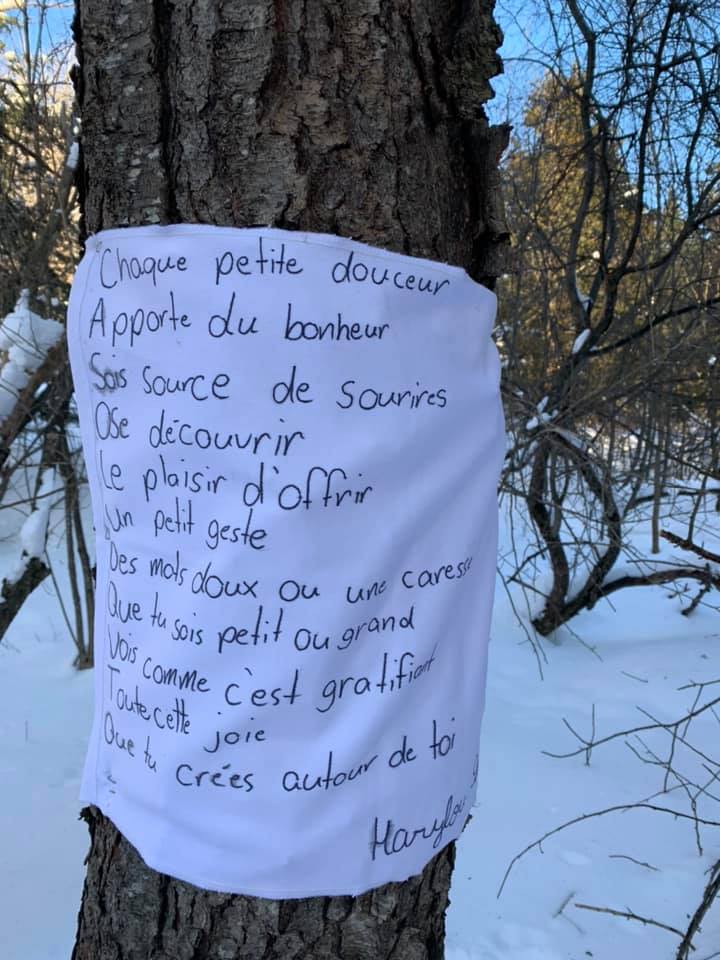 Chaque petite douceur
Apporte du bonheur
Sois source de sourires
Ose découvrir
Le plaisir d'offrir
Un petit geste
Des mots doux ou une caresse
Que tu sois petit ou grand
Vois comme c'est gratifiant
Toute cette joie
Que tu crées autour de toi
Marylou